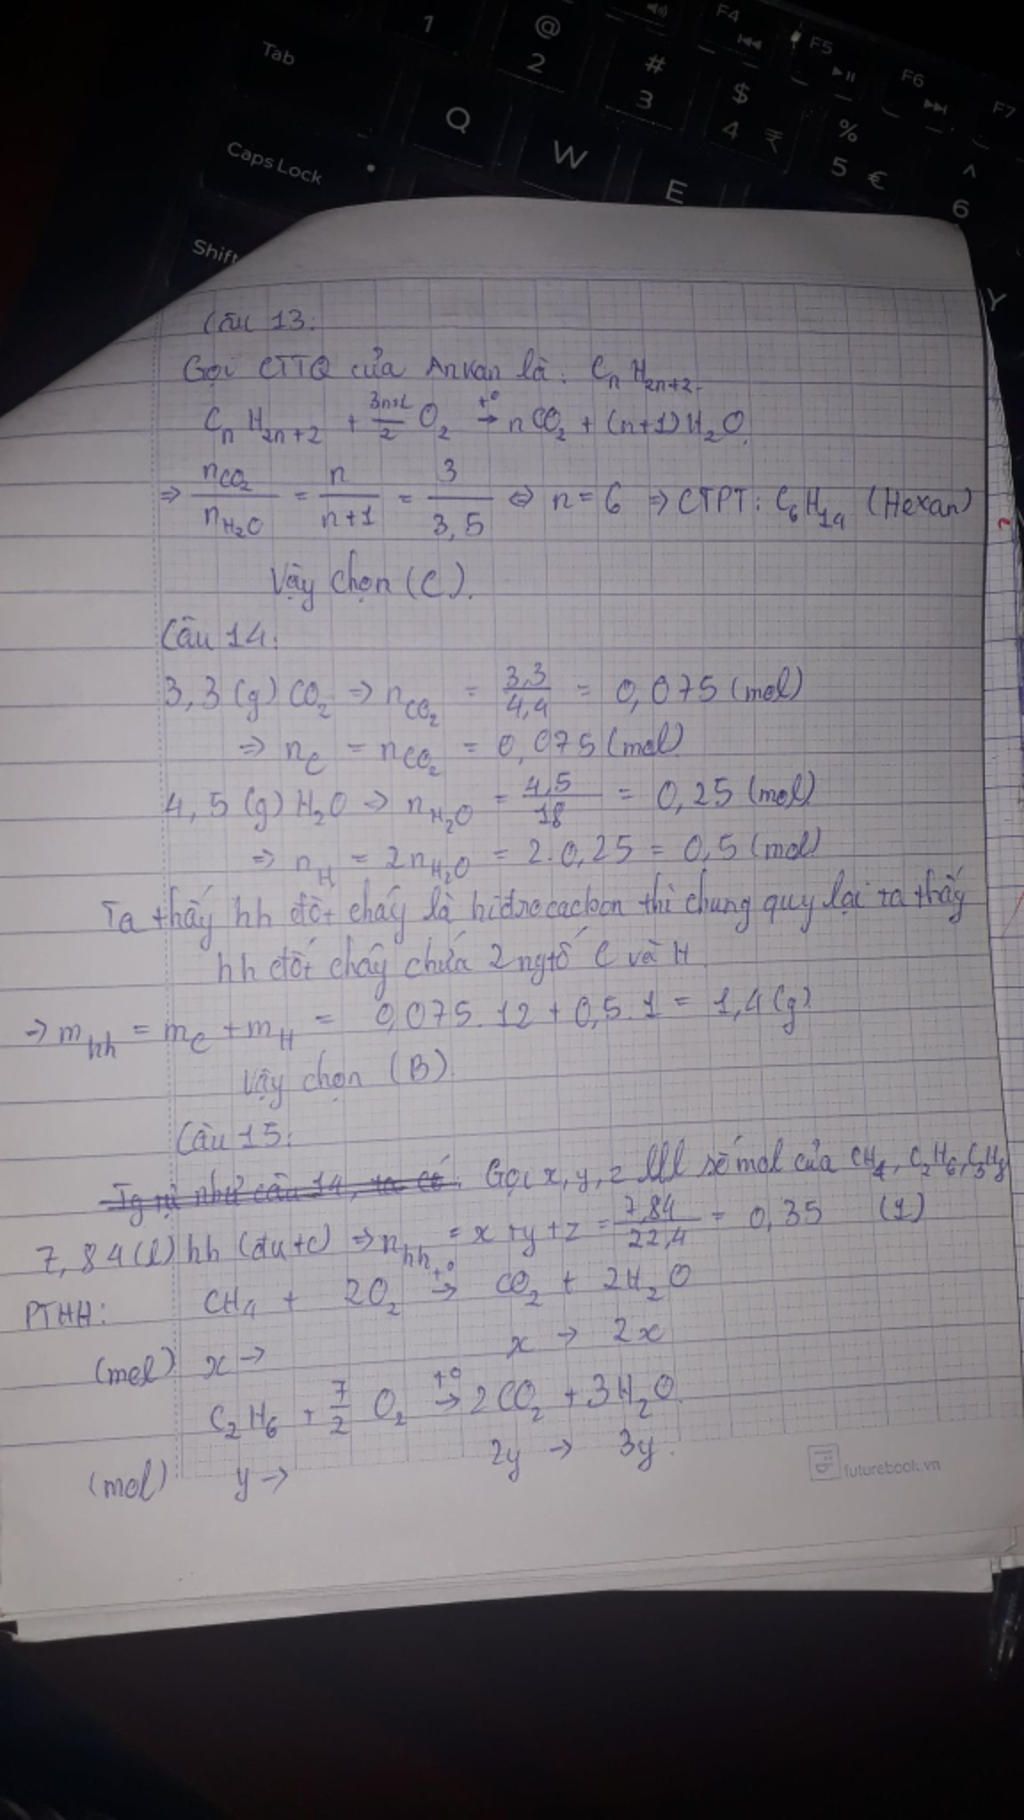 Tab
Caps Lock
Shift
1
@
2
#
3
$
4 ₹
%
5 €
^
6
F4
F5
F6
F7
Q
W
E
Y
Câu 13:
Gọi CTTQ của Ankan là: CₙH₂ₙ₊₂.
CₙH₂ₙ₊₂ + (3n+1)/2 O₂ →(t⁰) nCO₂ + (n+1)H₂O.
⇒ n_CO₂ / n_H₂O = n/(n+1) = 3/3,5 ⇔ n = 6 ⇒ CTPT: C₆H₁₄ (Hexan)
Vậy chọn (C).
Câu 14:
3,3 (g) CO₂ ⇒ n_CO₂ = 3,3/4,4 = 0,075 (mol)
⇒ n_C = n_CO₂ = 0,075 (mol)
4,5 (g) H₂O ⇒ n_H₂O = 4,5/18 = 0,25 (mol)
⇒ n_H = 2n_H₂O = 2.0,25 = 0,5 (mol)
Ta thấy hh đốt cháy là hiđrocacbon thì chung quy lại ta thấy
hh đốt cháy chứa 2 ngtố C và H
⇒ m_hh = m_C + m_H = 0,075.12 + 0,5.1 = 1,4 (g)
Vậy chọn (B).
Câu 15:
Tg tự như câu 14, ta có. Gọi x, y, z lll số mol của CH₄, C₂H₆, C₃H₈
7,84 (l) hh (đktc) ⇒ n_hh = x + y + z = 7,84/22,4 = 0,35 (1)
PTHH: CH₄ + 2O₂ →(t⁰) CO₂ + 2H₂O
(mol) x → x → 2x
C₂H₆ + 7/2 O₂ →(t⁰) 2CO₂ + 3H₂O
(mol) y → 2y → 3y.
futurebook.vn